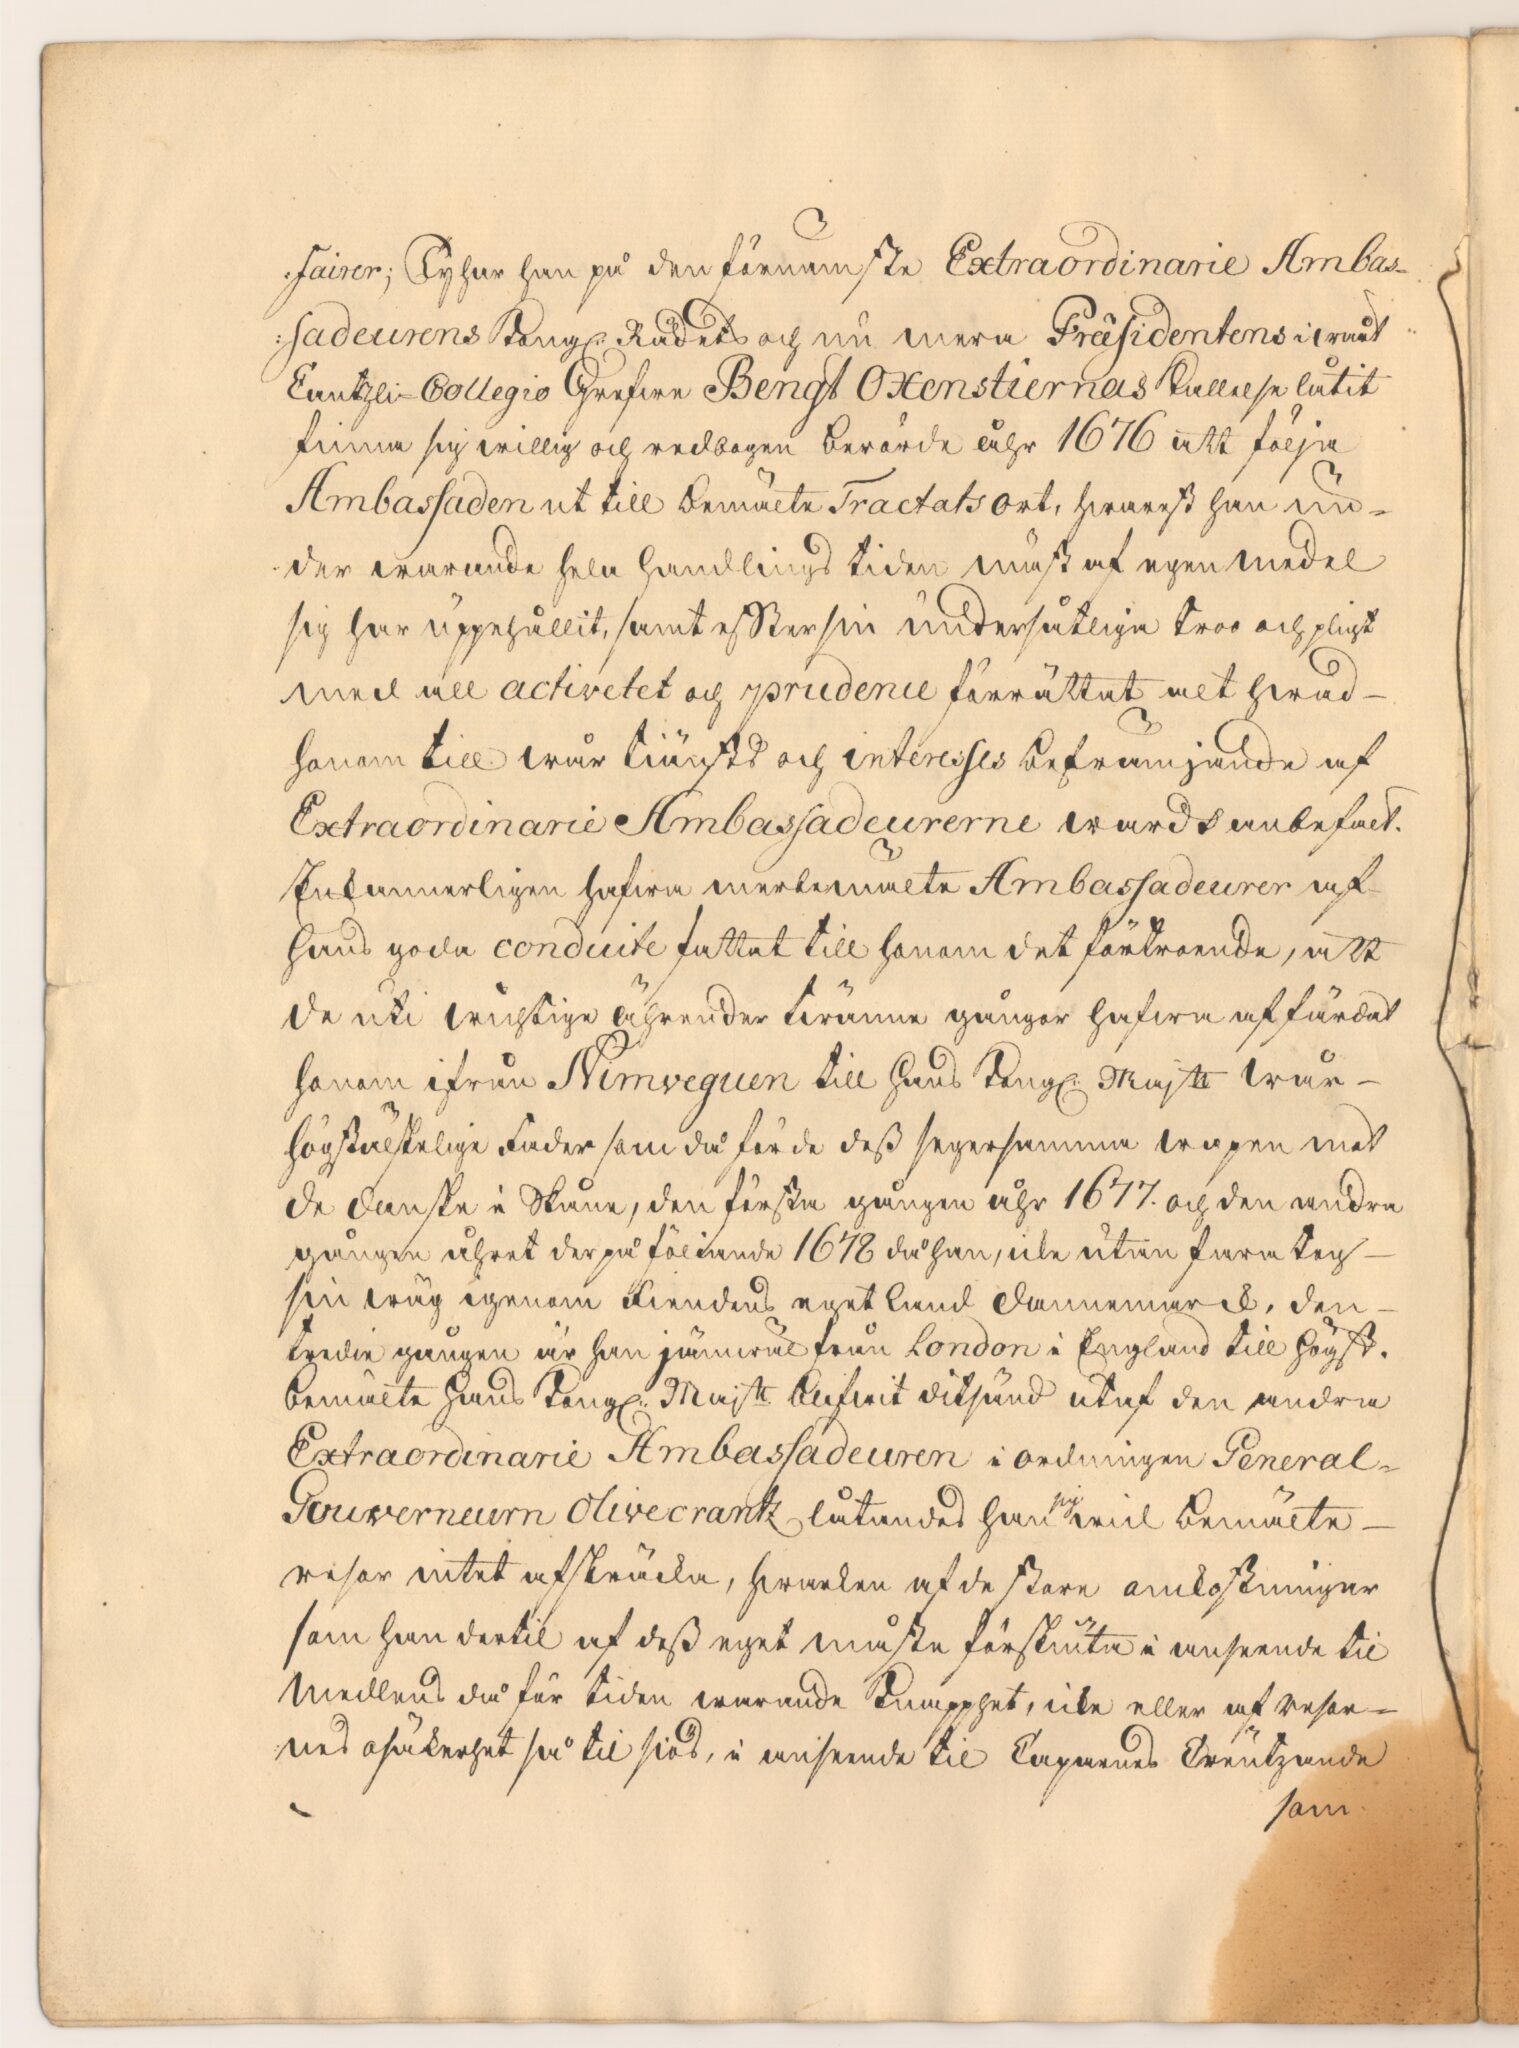 :fairer; Ty har han på den förnämste Extraordinarie Ambas-
:sadeurens Kongl: Rådets och nu mera Præsidentens i wårt
Cantzli-Collegio Grefwe Bengt Oxenstiernas kallelse låtit
finna sig willig och redbogen berörde åhr 1676 att följa
Ambassaden ut till bemälte Tractats ort, hwarest han un-
der warande hela handlings tiden mäst af egen medel
sig har uppehållit, samt effter sin undersåtliga troo och plicht
med all activetet och prudence förrättat alt hwad-
honom till wår tiänsts och interesses befrämjande af
Extraordinarie Ambassadeurerne wardt anbefalt.
Enkannerligen hafwa merbemälte Ambassadeurer af
hans goda conduite fattat till honom det förtroende, att
de uti wichtige ährender twänne gångor hafwa affärdat
honom ifrån Nimveguen till Hans Kongl: Maj:tt wår-
högstälskelige Fader som då förde deß segersamma wapen mot
de Danske i Skåne, den första gången åhr 1677. och den andra
gången åhret derpå föliande 1678 då han, icke utan fara tog-
sin wäg igenom Fiendens eget land Dannemarck, den-
tredie gången är han jämwäl från London i England till högst.
bemälte Hans Kongl: Maj:tt blifwit ditsänd utaf den andra
Extraordinarie Ambassadeuren i ordningen General-
Gouverneurn Olivecrantz, låtandes han sig wid bemälte-
resor intet afskräcka, hwarken af de store omkostningar
som han dertil af deß eget måste förskiuta i anseende til
medlens då för tiden warande knapphet, icke eller af resor-
nes osäkerhet så til siös, i anseende til Caparnes Creutzande
som